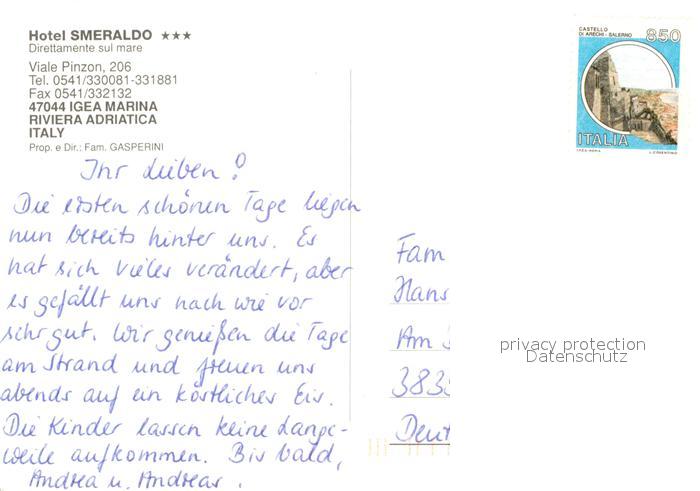 Hotel SMERALDO ★★★
Direttamente sul mare
Viale Pinzon, 206
Tel. 0541/330081-331881
Fax 0541/332132
47044 IGEA MARINA
RIVIERA ADRIATICA
ITALY
Prop. e Dir.: Fam. GASPERINI
Ihr Lieben!
Die ersten schönen Tage liegen
nun bereits hinter uns. Es
hat sich vieles verändert, aber
es gefällt uns nach wie vor
sehr gut. Wir genießen die Tage
am Strand und freuen uns
abends auf ein köstliches Eis.
Die Kinder lassen keine Lange-
weile aufkommen. Bis bald,
Andrea u. Andreas.
CASTELLO
DI ARECHI - SALERNO
850
ITALIA
Fam
Hans
Am
383
Deut
privacy protection
Datenschutz